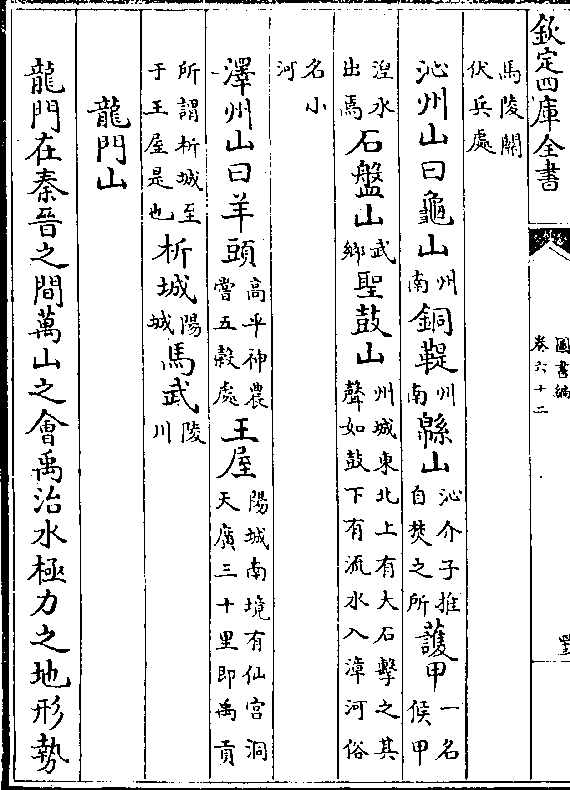 欽定四庫全書
圖書編
卷六十二
馬陵關伏兵處
沁州山曰龜山州南銅鞮州南緜山沁介子推自焚之所護甲一名候甲
湼水出焉石盤山武鄉聖鼓山州城東北上有大石擊之其聲如鼓下有流水入漳河俗
名小河
澤州山曰羊頭高平神農嘗五穀處王屋陽城南境有仙宫洞天廣三十里即禹貢
所謂析城至于王屋是也析城陽城馬武陵川
龍門山
龍門在秦晉之間萬山之會禹治水極力之地形勢